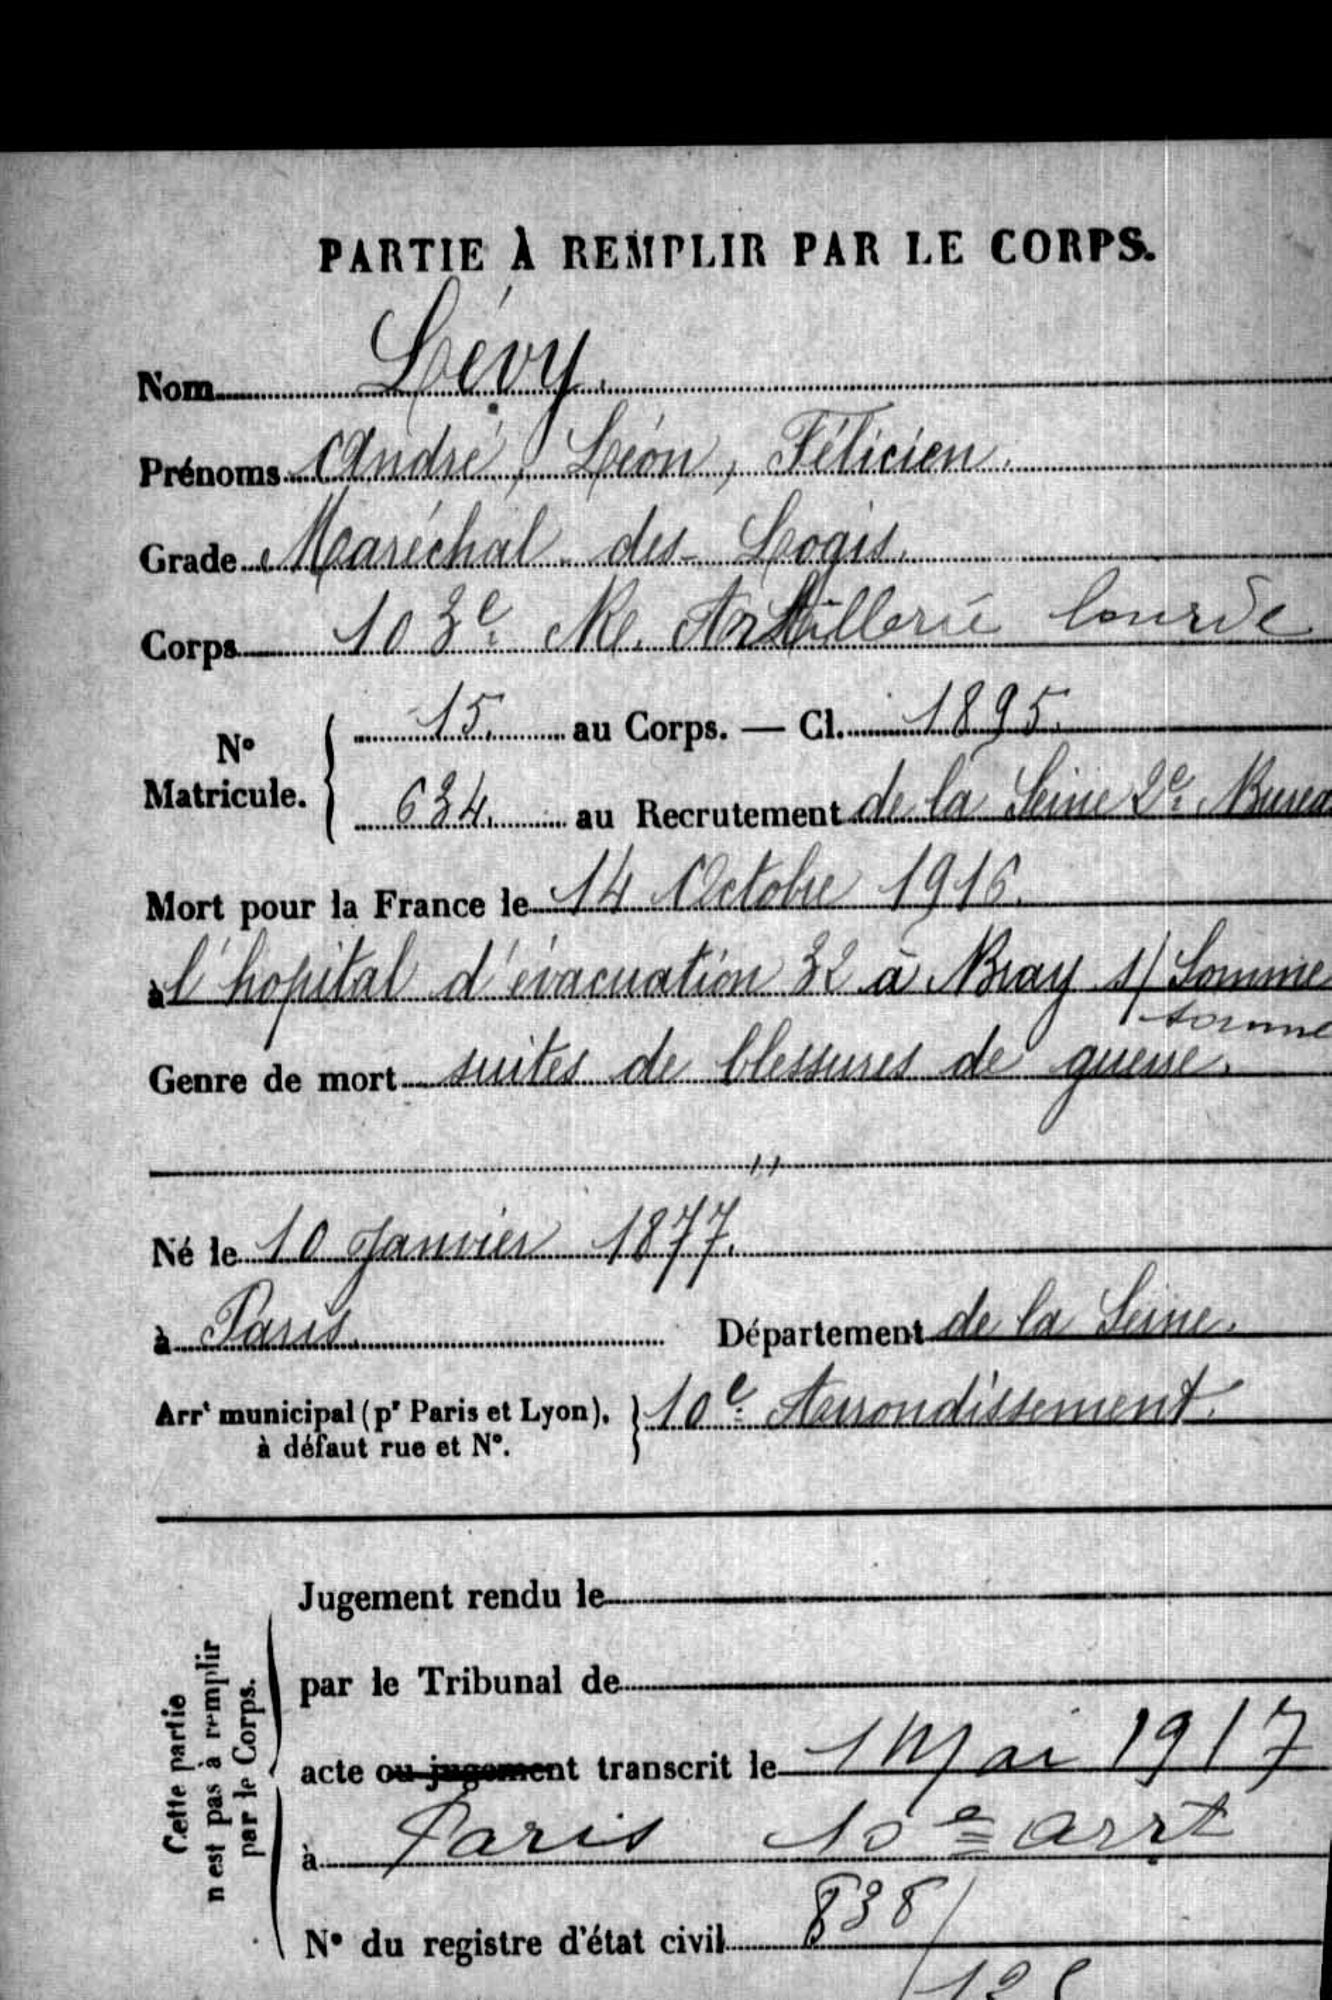 PARTIE À REMPLIR PAR LE CORPS.
Nom Lévy.
Prénoms André, Léon, Félicien.
Grade Maréchal des Logis.
Corps 103e Rt. Artillerie lourde
N° Matricule. { 15. au Corps. — Cl. 1895.
634. au Recrutement de la Seine 2e Burea
Mort pour la France le 14 Octobre 1916.
à l'hopital d'évacuation 32 à Bray s/ Somme
Somme
Genre de mort suites de blessures de guerre.
Né le 10 Janvier 1877.
à Paris. Département de la Seine.
Arrt municipal (pr Paris et Lyon), } 10e Arrondissement.
à défaut rue et N°.
Cette partie
n'est pas à remplir
par le Corps.
Jugement rendu le
par le Tribunal de
acte ou jugement transcrit le 1 Mai 1917
à Paris 10e arrt
N° du registre d'état civil 838/